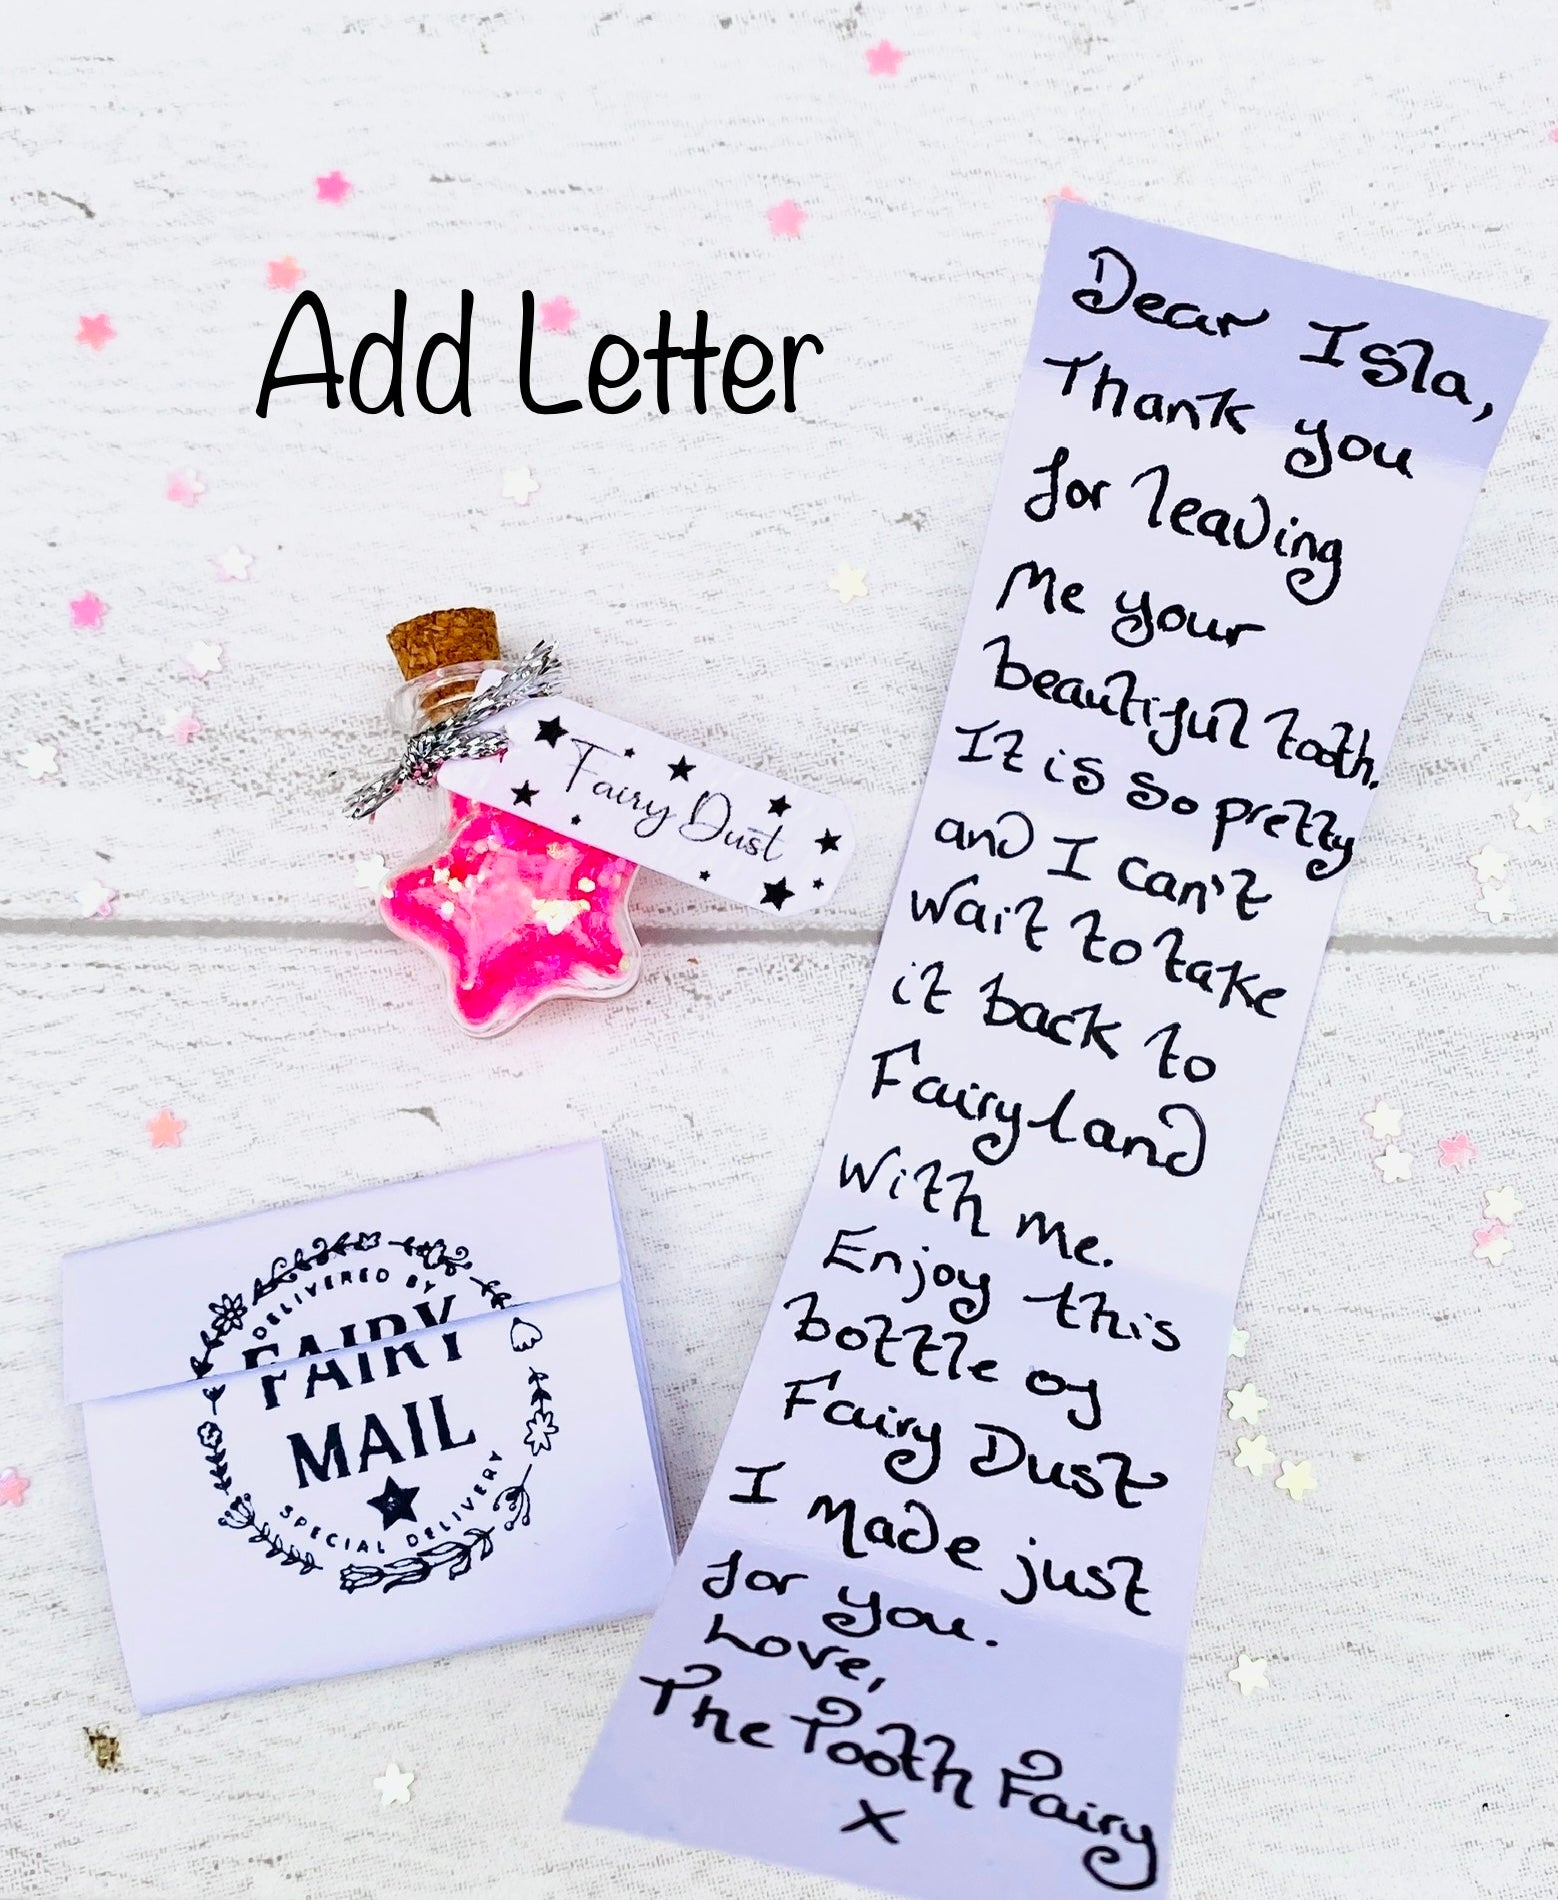 Add Letter
Dear Isla,
Thank you
for leaving
Me your
beautiful tooth.
It is so pretty
and I can't
Wait to take
it back to
Fairyland
With me.
Enjoy this
bottle of
Fairy Dust
I Made just
for you.
Love,
The Tooth Fairy
X
Fairy Dust
DELIVERED BY
FAIRY
MAIL
SPECIAL DELIVERY